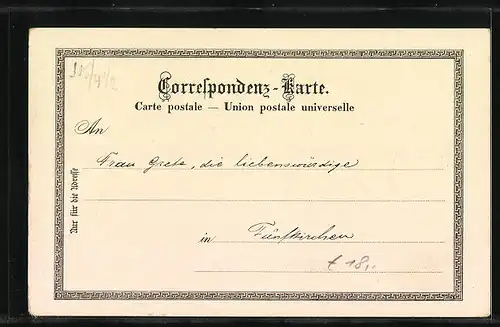 Correspondenz-Karte.
Carte postale — Union postale universelle
An
Frau Grete, die liebenswürdige
Nur für die Adresse
in Fünfkirchen
€ 18,-